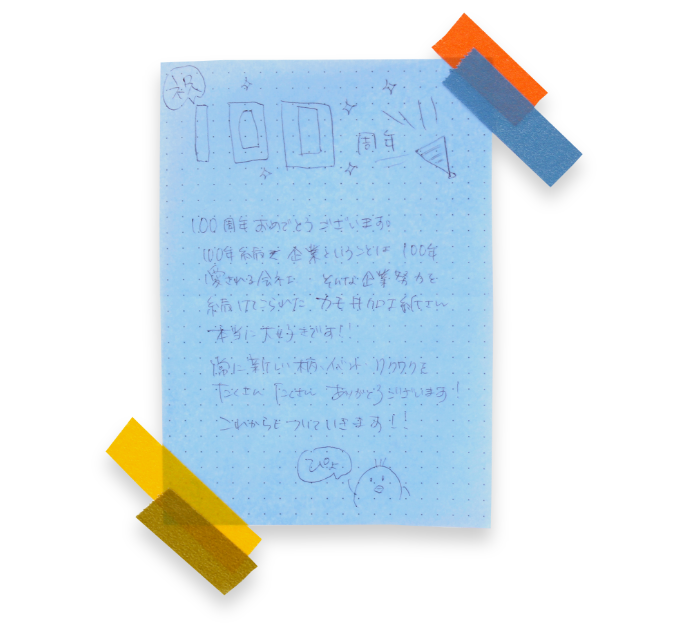 祝
100周年
100周年おめでとうございます。
100年続く企業ということは 100年
愛される会社 そんな企業努力を
続けてこられた、カモ井加工紙さん
本当に大好きです!!
常に新しい柄 ワクワクを
たくさん たくさん ありがとうございます!
これからもついていきます!!
ぴよ